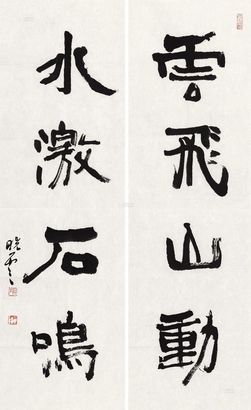 雲飛山動
水激石鳴